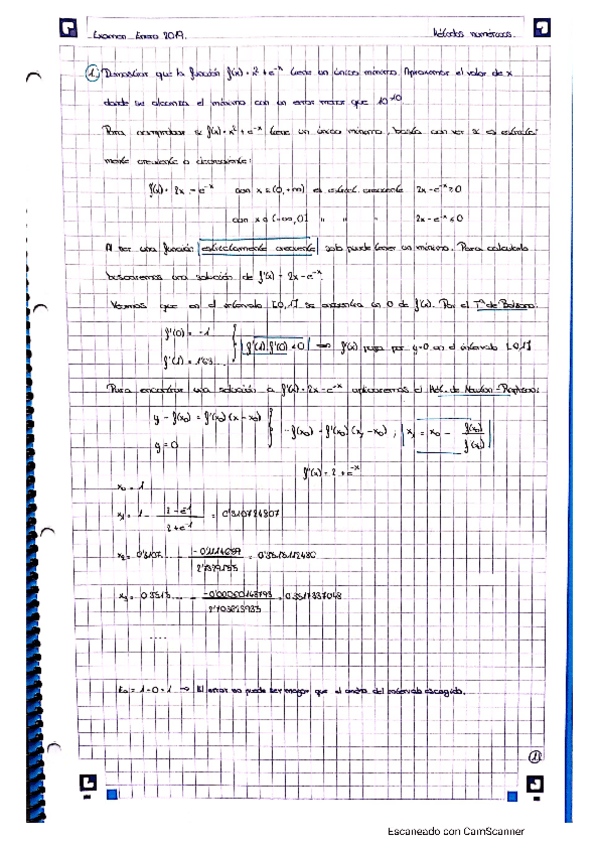 Examen Enero 2019. Métodos numéricos.
1. Demostrar que la función f(x) = x² + e^-x tiene un único mínimo. Aproximar el valor de x
donde se alcanza el mínimo con un error menor que 10^-10
Para comprobar si f(x) = x² + e^-x tiene un único mínimo, basta con ver si es estricta-
mente creciente o decreciente:
f'(x) = 2x - e^-x con x ∈ (0, +∞) es estrict. creciente 2x - e^-x > 0
con x ∈ (-∞, 0] " " " 2x - e^-x < 0
Al ser una función estrictamente creciente solo puede tener un mínimo. Para calcularlo
buscaremos una solución de f'(x) = 2x - e^-x.
Veamos que en el intervalo [0,1] se encuentra un 0 de f'(x). Por el Tª de Bolzano:
f'(0) = -1
f'(1) = 1'63... } f'(1).f'(0) < 0 ⟹ f'(x) pasa por y=0 en el intervalo [0,1]
Para encontrar una solución a f'(x) = 2x - e^-x aplicaremos el Mét. de Newton-Raphson:
y - f(x0) = f'(x0)(x - x0)
y = 0 } -f(x0) = f'(x0)(x1 - x0) ; x1 = x0 - f(x0)/f'(x0)
f''(x) = 2 + e^-x
x0 = 1
x1 = 1 - (2 - e^-1)/(2 + e^-1) = 0'310724807
x2 = 0'3107... -
x3 = 0'3515... - = 0'3517337048
....
E0 = 1 - 0 = 1 → El error no puede ser mayor que el ancho del intervalo escogido.
1
Escaneado con CamScanner